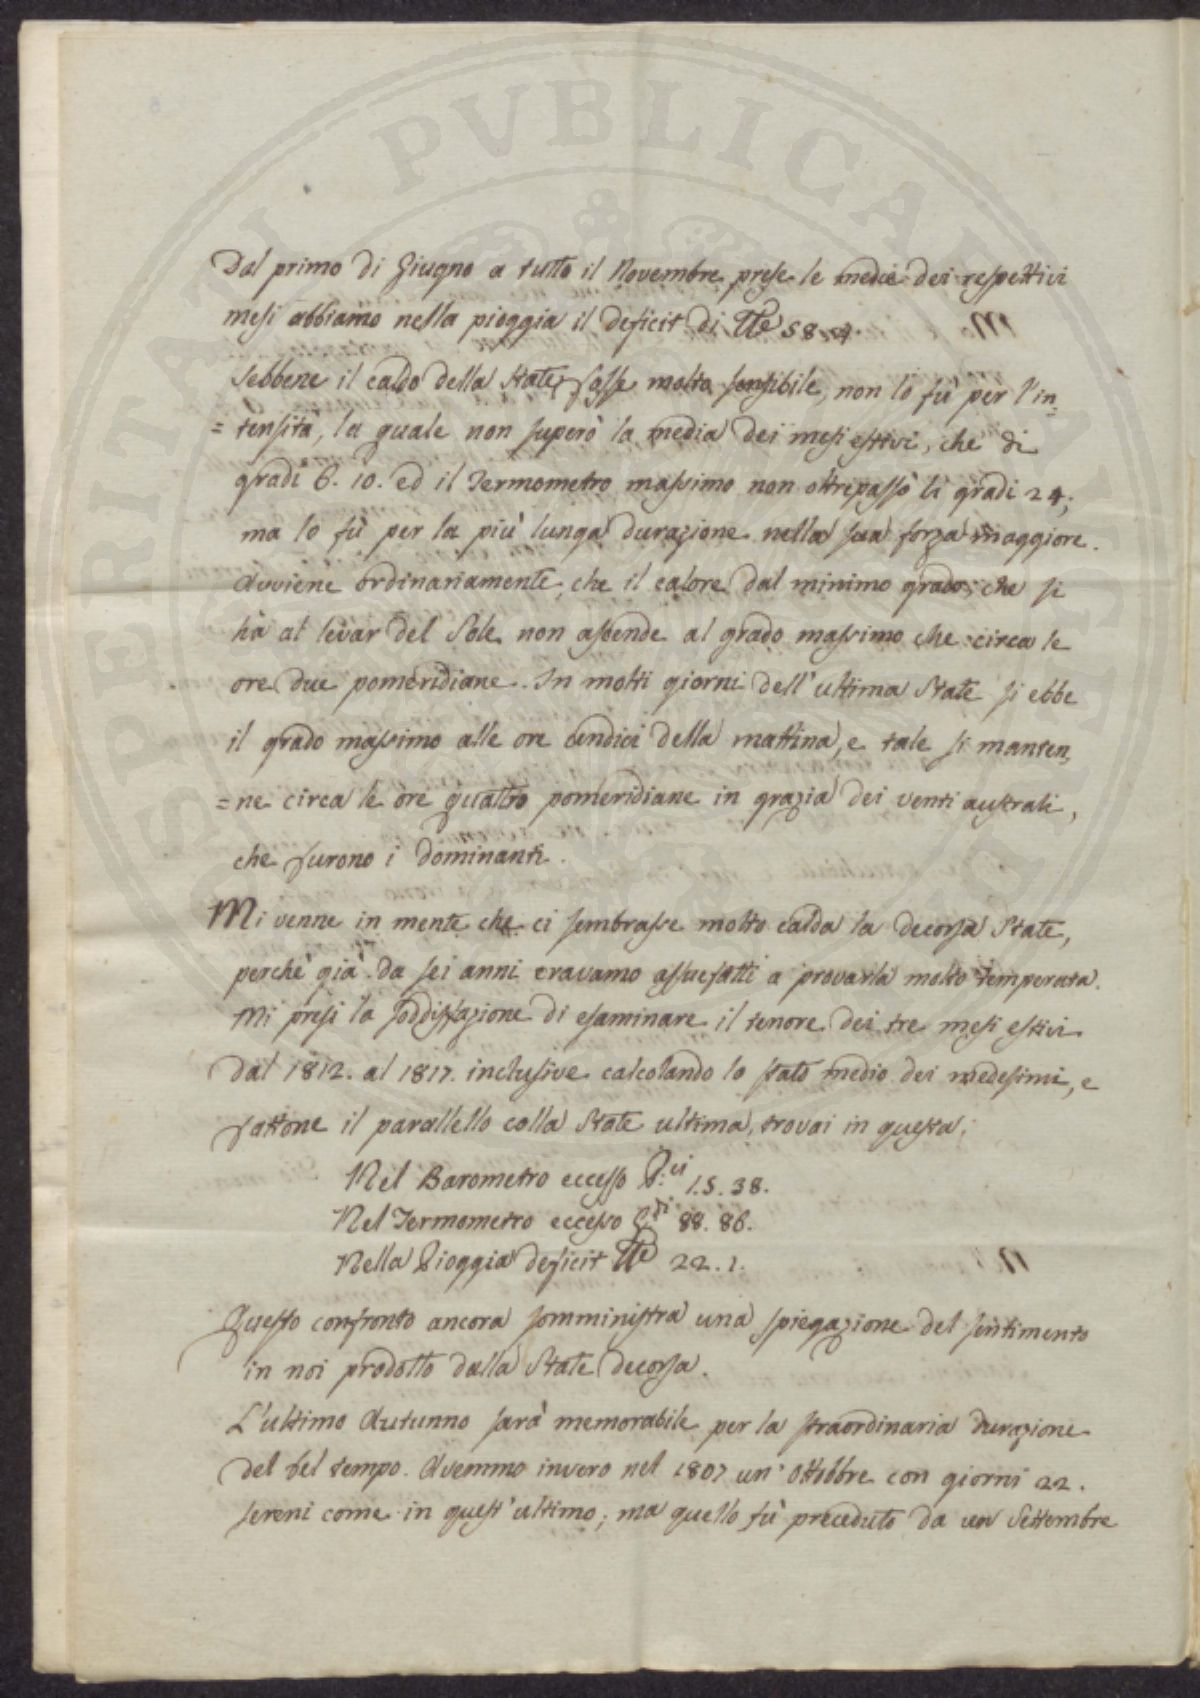 Dal primo di Giugno a tutto il Novembre prese le medie dei respettivi
mesi abbiamo nella pioggia il deficit di 58.4.
Sebbene il caldo della State fosse molto sensibile, non lo fù per l'in=
=tensità, la quale non superò la media dei mesi estivi, che di
gradi 6. 10. ed il Termometro massimo non oltrepassò li gradi 24;
ma lo fù per la più lunga durazione nella sua forza maggiore.
Avviene ordinariamente, che il calore dal minimo grado, che si
hà al levar del Sole non ascende al grado massimo che circa le
ore due pomeridiane. In molti giorni dell'ultima State si ebbe
il grado massimo alle ore undici della mattina, e tale si manten,
=ne circa le ore quattro pomeridiane in grazia dei venti australi,
che furono i dominanti.
Mi venne in mente che ci sembrasse molto calda la decorsa State,
perchè già da sei anni eravamo assuefatti a provarla molto temperata.
Mi presi la soddisfazione di esaminare il tenore dei tre mesi estivi
dal 1812. al 1817. inclusive calcolando lo stato medio dei medesimi, e
fattone il parallello colla State ultima, trovai in questa;
Nel Barometro eccesso P.ci 1.5.38.
Nel Termometro eccesso G.di 88.86.
Nella Pioggia deficit 22.1.
Questo confronto ancora somministra una spiegazione del sentimento
in noi prodotto dalla State decorsa.
L'ultimo Autunno sarà memorabile per la straordinaria durazione
del bel tempo. Avemmo invero nel 1807 un' Ottobbre con giorni 22.
sereni come in quest'ultimo; ma quello fù preceduto da un Settembre
SPERITATI PVBLICAE AVGEN